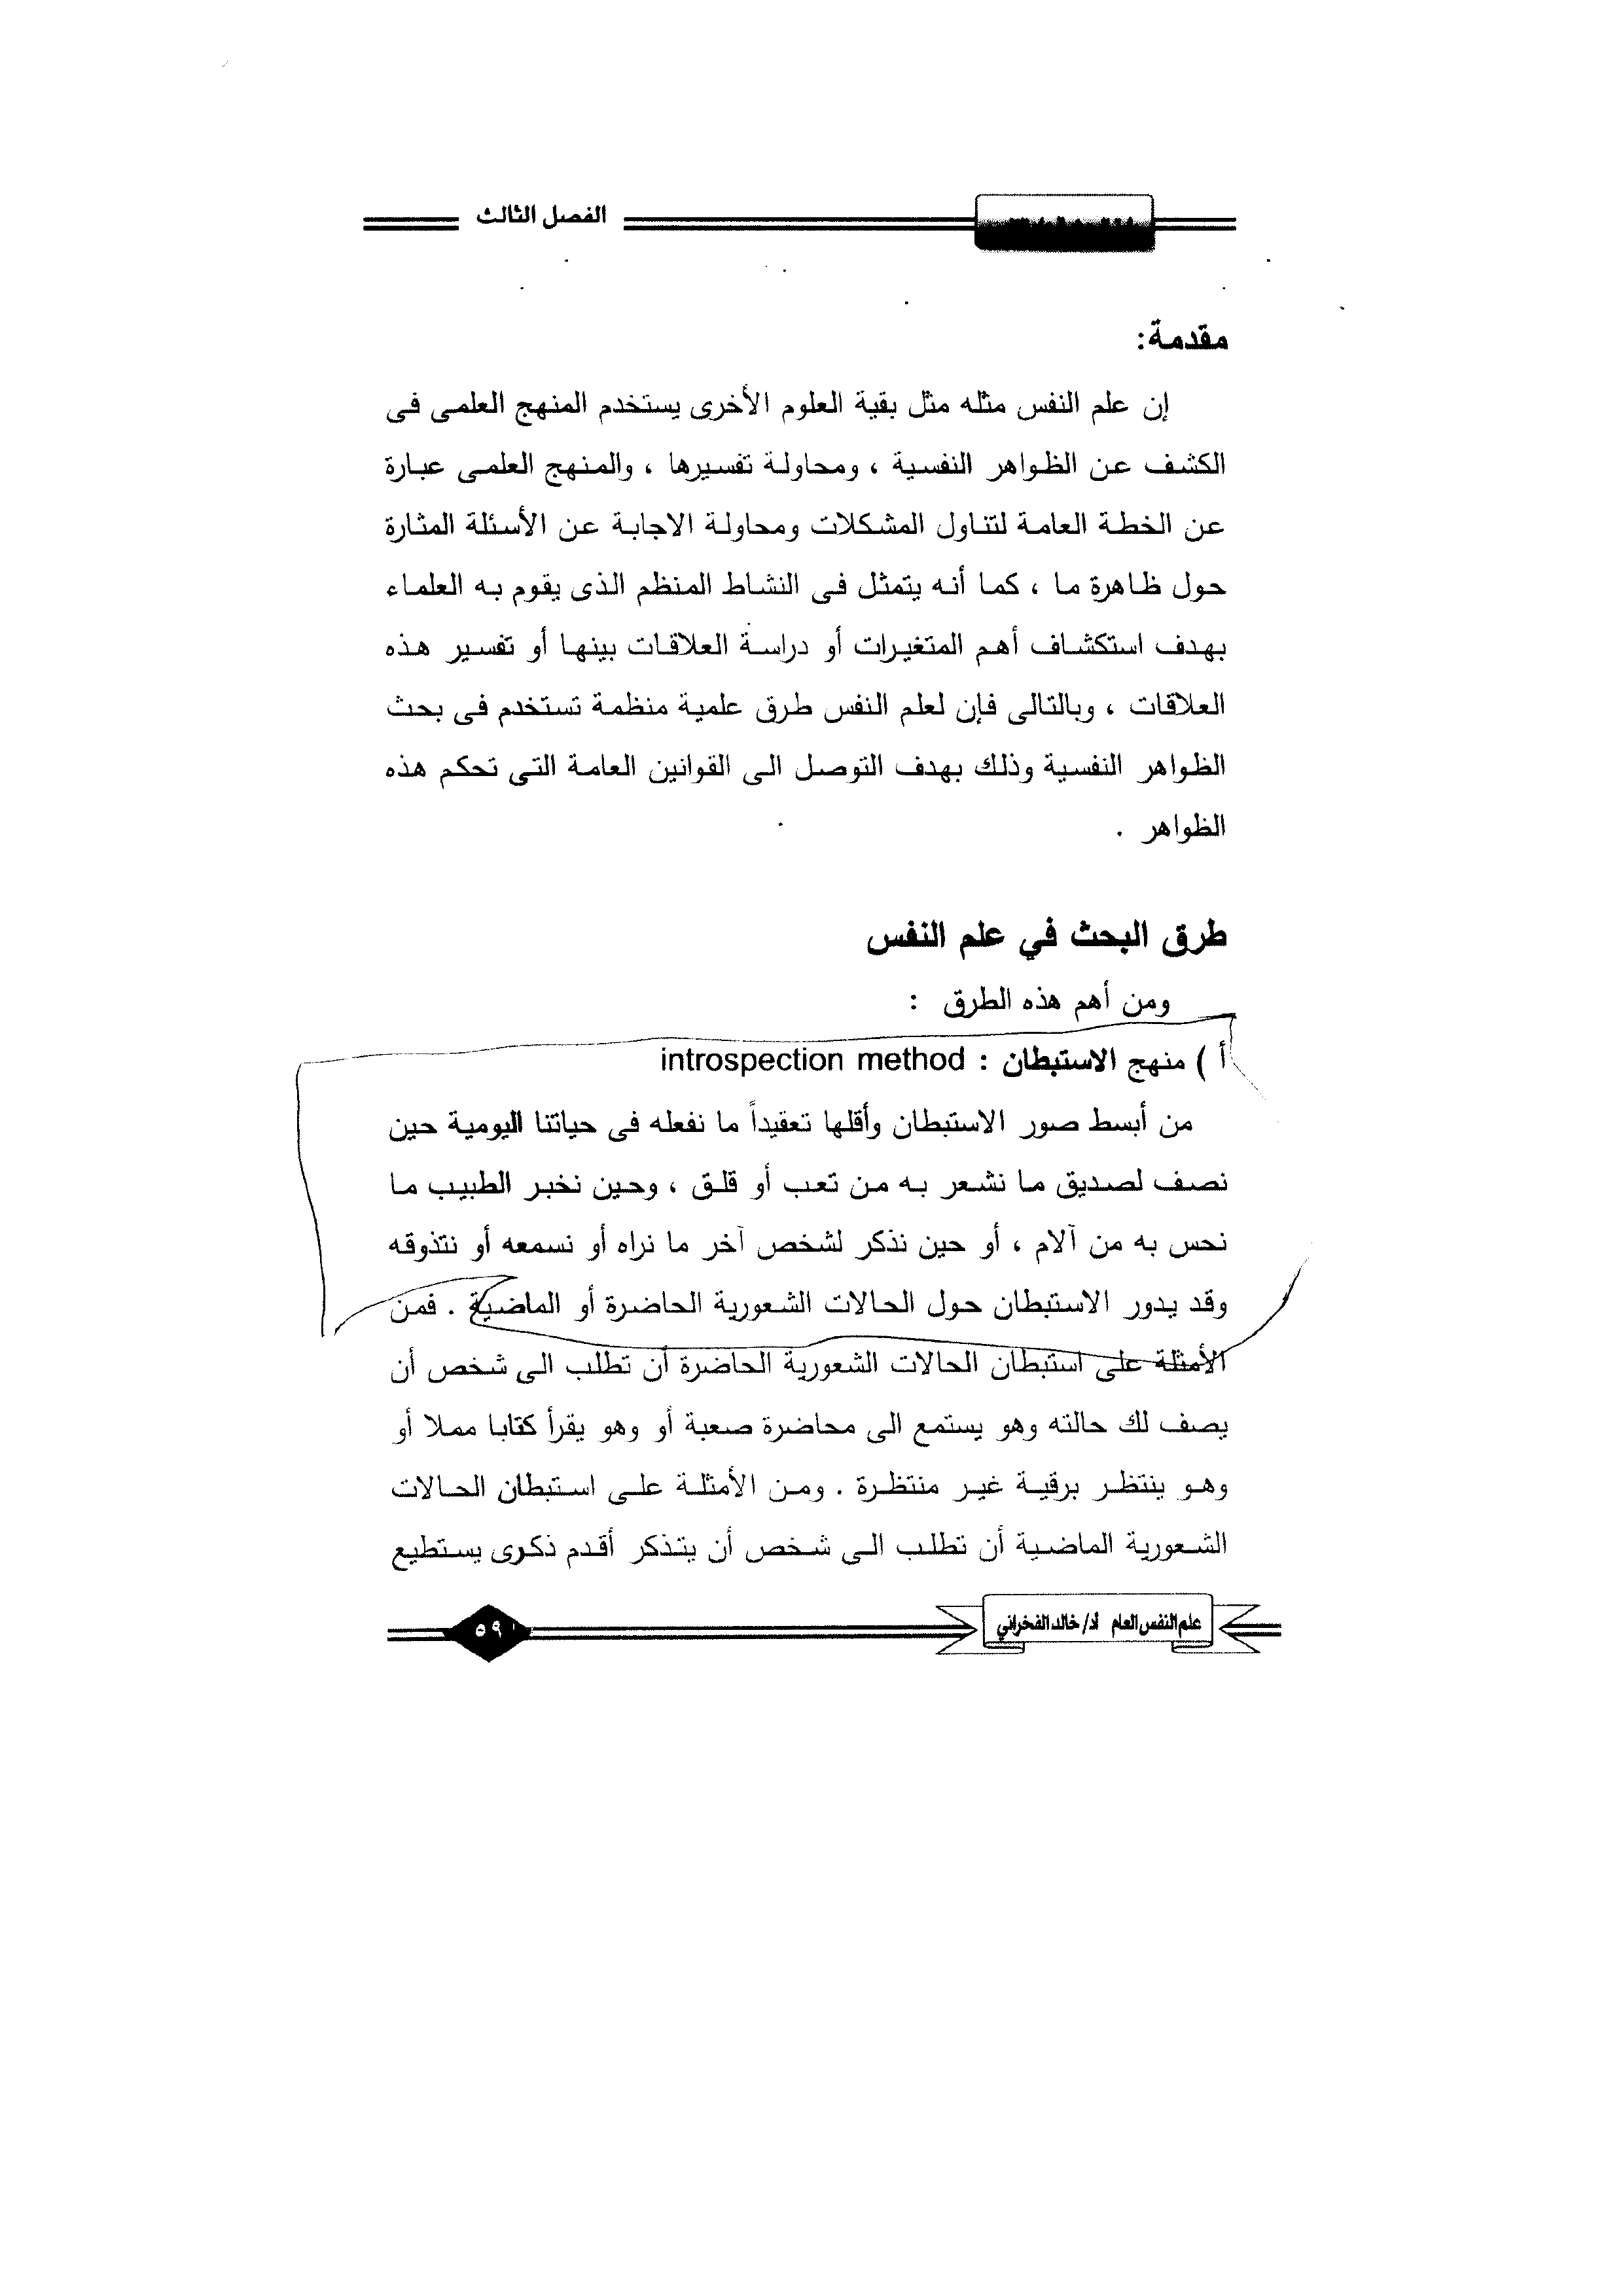 الفصل الثالث
مقدمة:
إن علم النفس مثله مثل بقية العلوم الأخرى يستخدم المنهج العلمى فى
الكشف عن الظواهر النفسية ، ومحاولة تفسيرها ، والمنهج العلمى عبارة
عن الخطة العامة لتناول المشكلات ومحاولة الاجابة عن الأسئلة المثارة
حول ظاهرة ما ، كما أنه يتمثل فى النشاط المنظم الذى يقوم به العلماء
بهدف استكشاف أهم المتغيرات أو دراسة العلاقات بينها أو تفسير هذه
العلاقات ، وبالتالى فإن لعلم النفس طرق علمية منظمة تستخدم فى بحث
الظواهر النفسية وذلك بهدف التوصل الى القوانين العامة التى تحكم هذه
الظواهر .
طرق البحث في علم النفس
ومن أهم هذه الطرق :
أ ) منهج الاستبطان : introspection method
من أبسط صور الاستبطان وأقلها تعقيداً ما نفعله فى حياتنا اليومية حين
نصف لصديق ما نشعر به من تعب أو قلق ، وحين نخبر الطبيب ما
نحس به من آلام ، أو حين نذكر لشخص آخر ما نراه أو نسمعه أو نتذوقه
وقد يدور الاستبطان حول الحالات الشعورية الحاضرة أو الماضية . فمن
الأمثلة على استبطان الحالات الشعورية الحاضرة أن تطلب الى شخص أن
يصف لك حالته وهو يستمع الى محاضرة صعبة أو وهو يقرأ كتابا مملا أو
وهو ينتظر برقية غير منتظرة . ومن الأمثلة على استبطان الحالات
الشعورية الماضية أن تطلب الى شخص أن يتذكر أقدم ذكرى يستطيع
علم النفس العام أد/ خالد الفخراني
٥٩